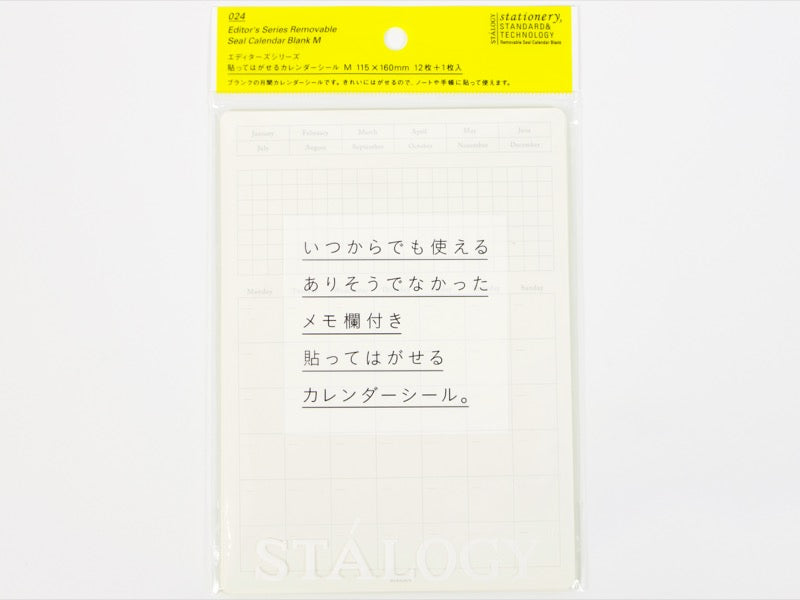 024
Editor's Series Removable
Seal Calendar Blank M
エディターズシリーズ
貼ってはがせるカレンダーシール M 115×160mm 12枚+1枚入
ブランクの月間カレンダーシールです。きれいにはがせるので、ノートや手帳に貼って使えます。
STÁLOGY
stationery,
STANDARD&
TECHNOLOGY
Removable Seal Calendar Blank
January February March April May June
July August September October November December
いつからでも使える
ありそうでなかった
Monday Sunday
メモ欄付き
貼ってはがせる
カレンダーシール。
STÁLOGY